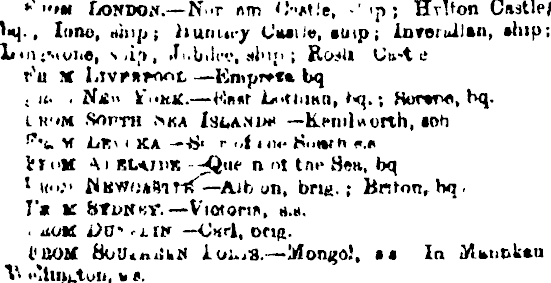 FROM LONDON.—Norham Castle, ship; Hylton Castle,
bq., Ione, ship; Huntley Castle, ship; Inverallan, ship;
ship, Jubilee, ship; Ross
FROM LIVERPOOL—Empress bq
FROM NEW YORK.—East Lothian, bq.; Serene, bq.
FROM SOUTH SEA ISLANDS—Kenilworth, sch
FROM LEVUKA—Star of the South s.s
FROM ADELAIDE—Queen of the Sea, bq
FROM NEWCASTLE—Albion, brig.; Briton, bq.
FROM SYDNEY.—Victoria, s.s.
FROM DUNEDIN—Carl, brig.
FROM SOUTHERN PORTS.—Mongol, s s In Manukau
Wellington, s.s.